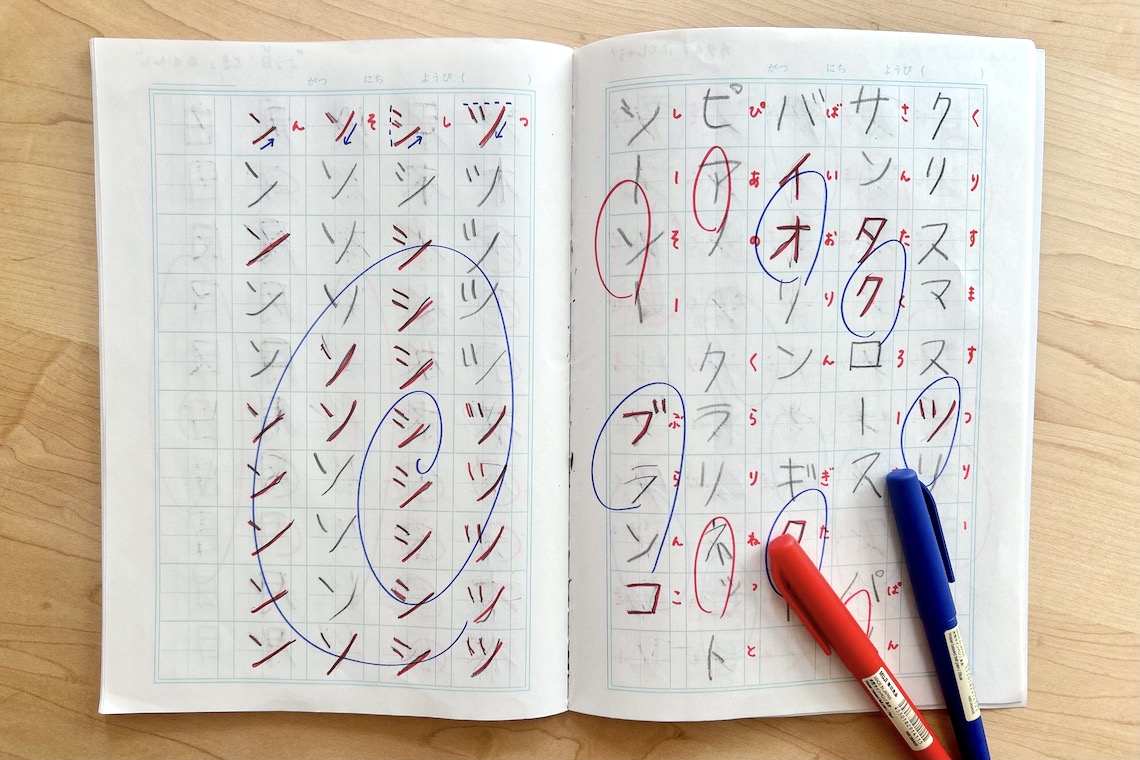 がつ にち ようび ( )
クリスマスツリ
くりすますつりー
サンタクロース パ
さんたくろー ぱん
バイオリン ギタ
ばいおりん ぎた
ピアノ クラリネット
ぴあの くらりねっと
シーソー ブランコ
しーそー ぶらんこ
がつ にち ようび ( )
ツツツツツツツツツツ
つ
シシシシシシシシシシ
し
ソソソソソソソソソソ
そ
ンンンンンンンンンン
ん